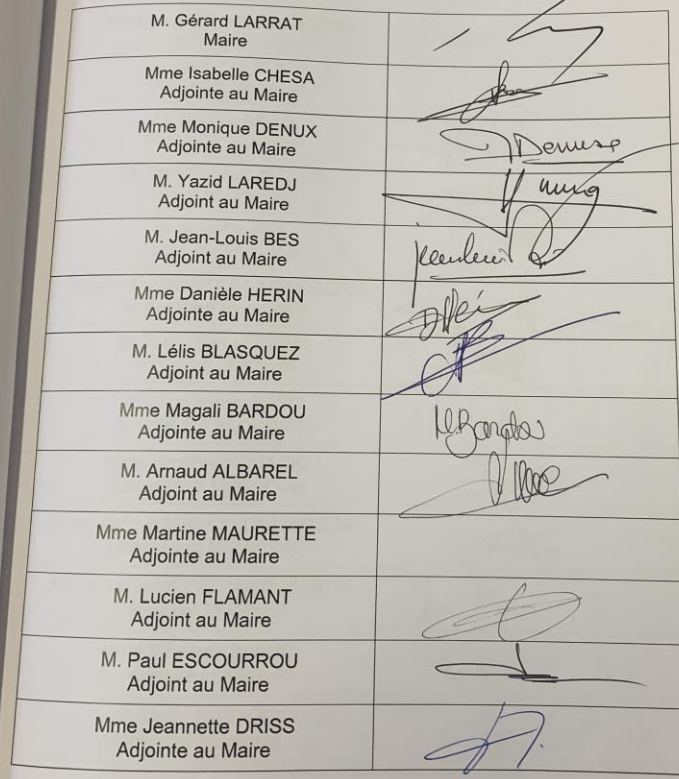 M. Gérard LARRAT
Maire
Mme Isabelle CHESA
Adjointe au Maire
Mme Monique DENUX
Adjointe au Maire
M. Yazid LAREDJ
Adjoint au Maire
M. Jean-Louis BES
Adjoint au Maire
Mme Danièle HERIN
Adjointe au Maire
M. Lélis BLASQUEZ
Adjoint au Maire
Mme Magali BARDOU
Adjointe au Maire
M. Arnaud ALBAREL
Adjoint au Maire
Mme Martine MAURETTE
Adjointe au Maire
M. Lucien FLAMANT
Adjoint au Maire
M. Paul ESCOURROU
Adjoint au Maire
Mme Jeannette DRISS
Adjointe au Maire